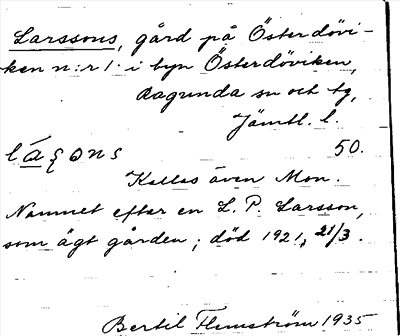 Larssons, gård på Österdövi-
ken n:r 1 i byn Österdöviken,
Ragunda sn och tg,
Jämtl. l.
50.
Kallas även Mon.
Namnet efter en L. P. Larsson,
som ägt gården; död 1921, 21/3.
Bertil Flemström 1935